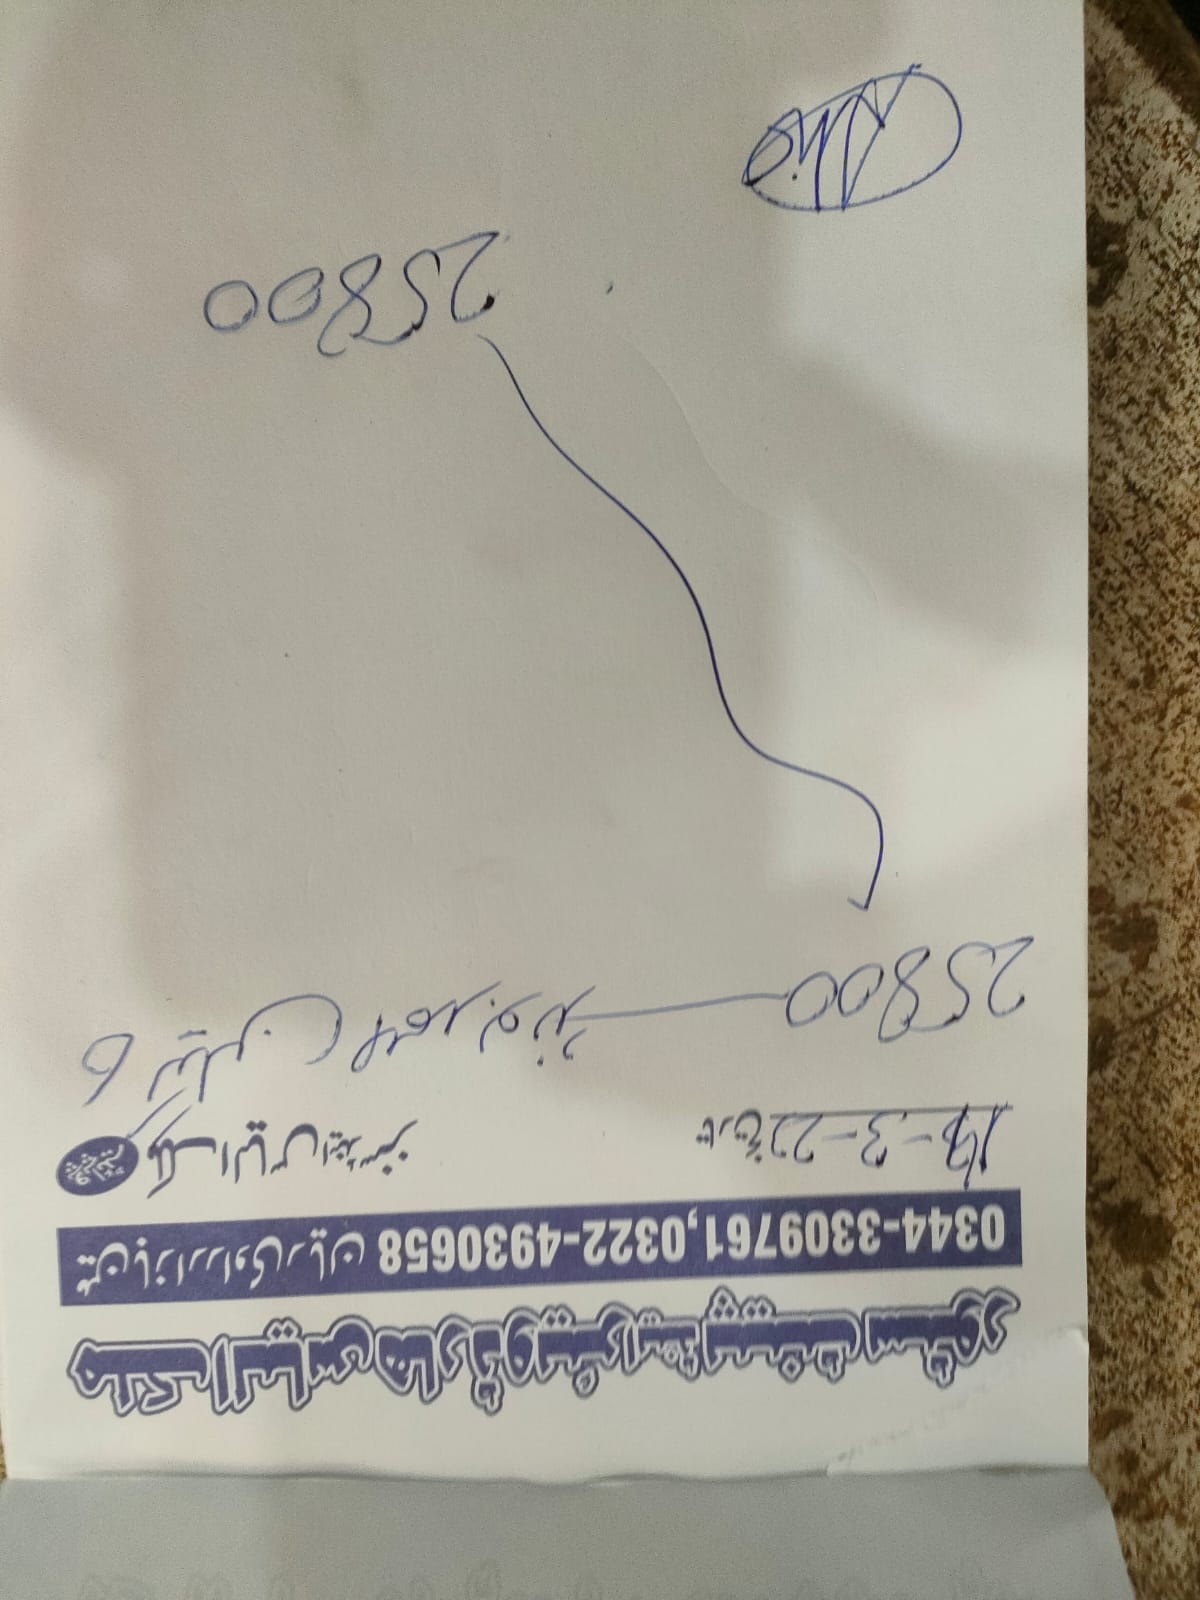 ملک الیاس ھارڈویئر اینڈ پینٹ سٹور
مین بازار راوی ریان 0344-3309761,0322-4930658
پروپرائٹر ملک الیاس اینڈ سنز
تاریخ -3-22
6 گیلن صمد بونڈ 25800
25800